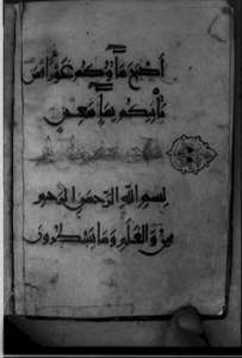 أصبح ماؤكم غورا فمن
يأتيكم بماء معين
بسم الله الرحمن الرحيم
ن والقلم وما يسطرون